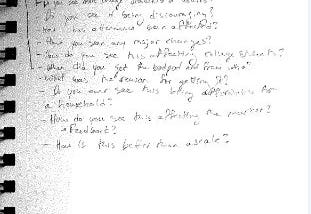 Do you see it being discouraging?
How has attendance been affected?
- Have you seen any major changes?
- How do you see this affecting college students?
- When did you get the and from who?
- What was the reason for getting it?
- Do you ever see this being for
a household?
- How do you see this affecting the market?
→ Feedback?
- How is this better than a scale?